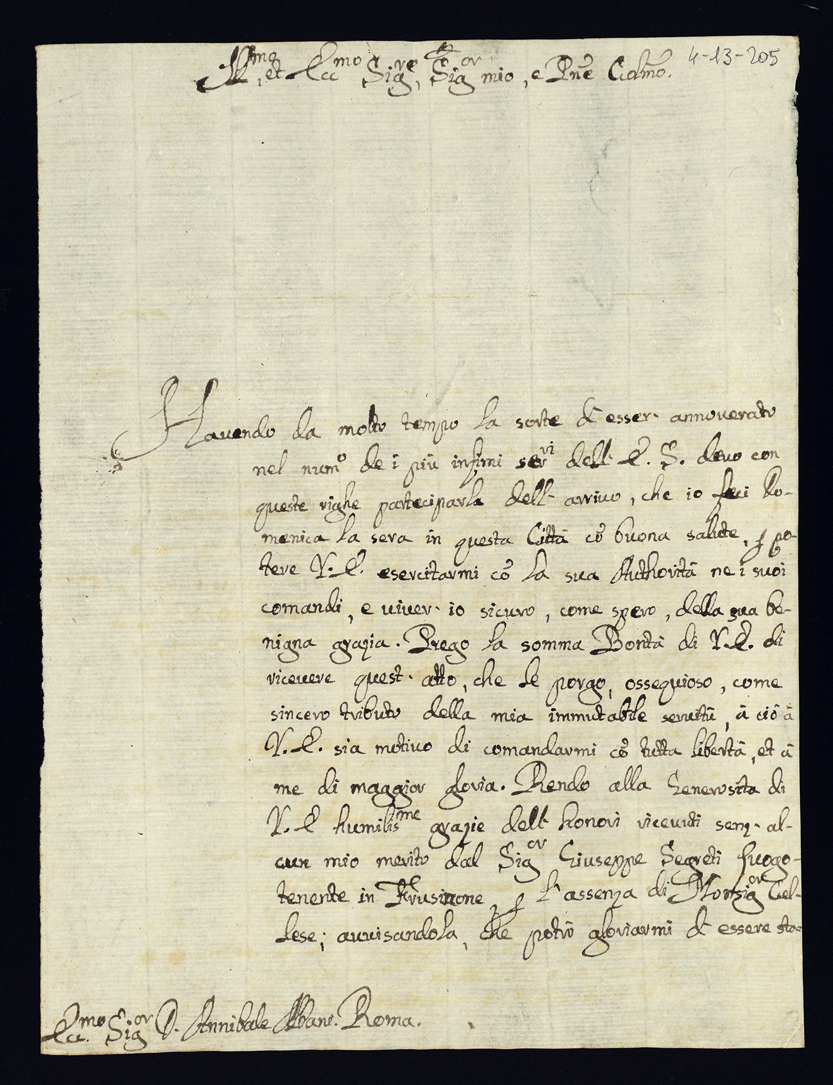 Ill.mo, et Ecc.mo Sig.re, Sig.or mio, e Pne Colmo. 4-13-205
Havendo da molto tempo la sorte d' esser' annoverato
nel num.o de i più infimi ser.vi dell' E. S. devo con
queste righe parteciparla dell' arrivo, che io feci Do-
menica la sera in questa Città cõ buona salute, p po-
tere V. E. esercitarmi cõ la sua Authorità ne i suoi
comandi, e viver' io sicuro, come spero, della sua be-
nigna grazia. Prego la somma Bontà di V. E. di
ricevere quest' atto, che le porgo, ossequioso, come
sincero tributo della mia immutabile servitù, à ciò à
V. E. sia motivo di comandarmi cõ tutta libertà, et à
me di maggior gloria. Rendo alla Generosità di
V. E humilis.me grazie dell' honori ricevuti senz' al-
cun mio merito dal Sig.or Giuseppe Segreti luogo-
tenente in Frusinone, p l' assenza di Monsig.or Cel-
lese; avvisandola, che potrò gloriarmi d' essere sta-
Ecc.mo Sig.or D. Annibale Albani. Roma.